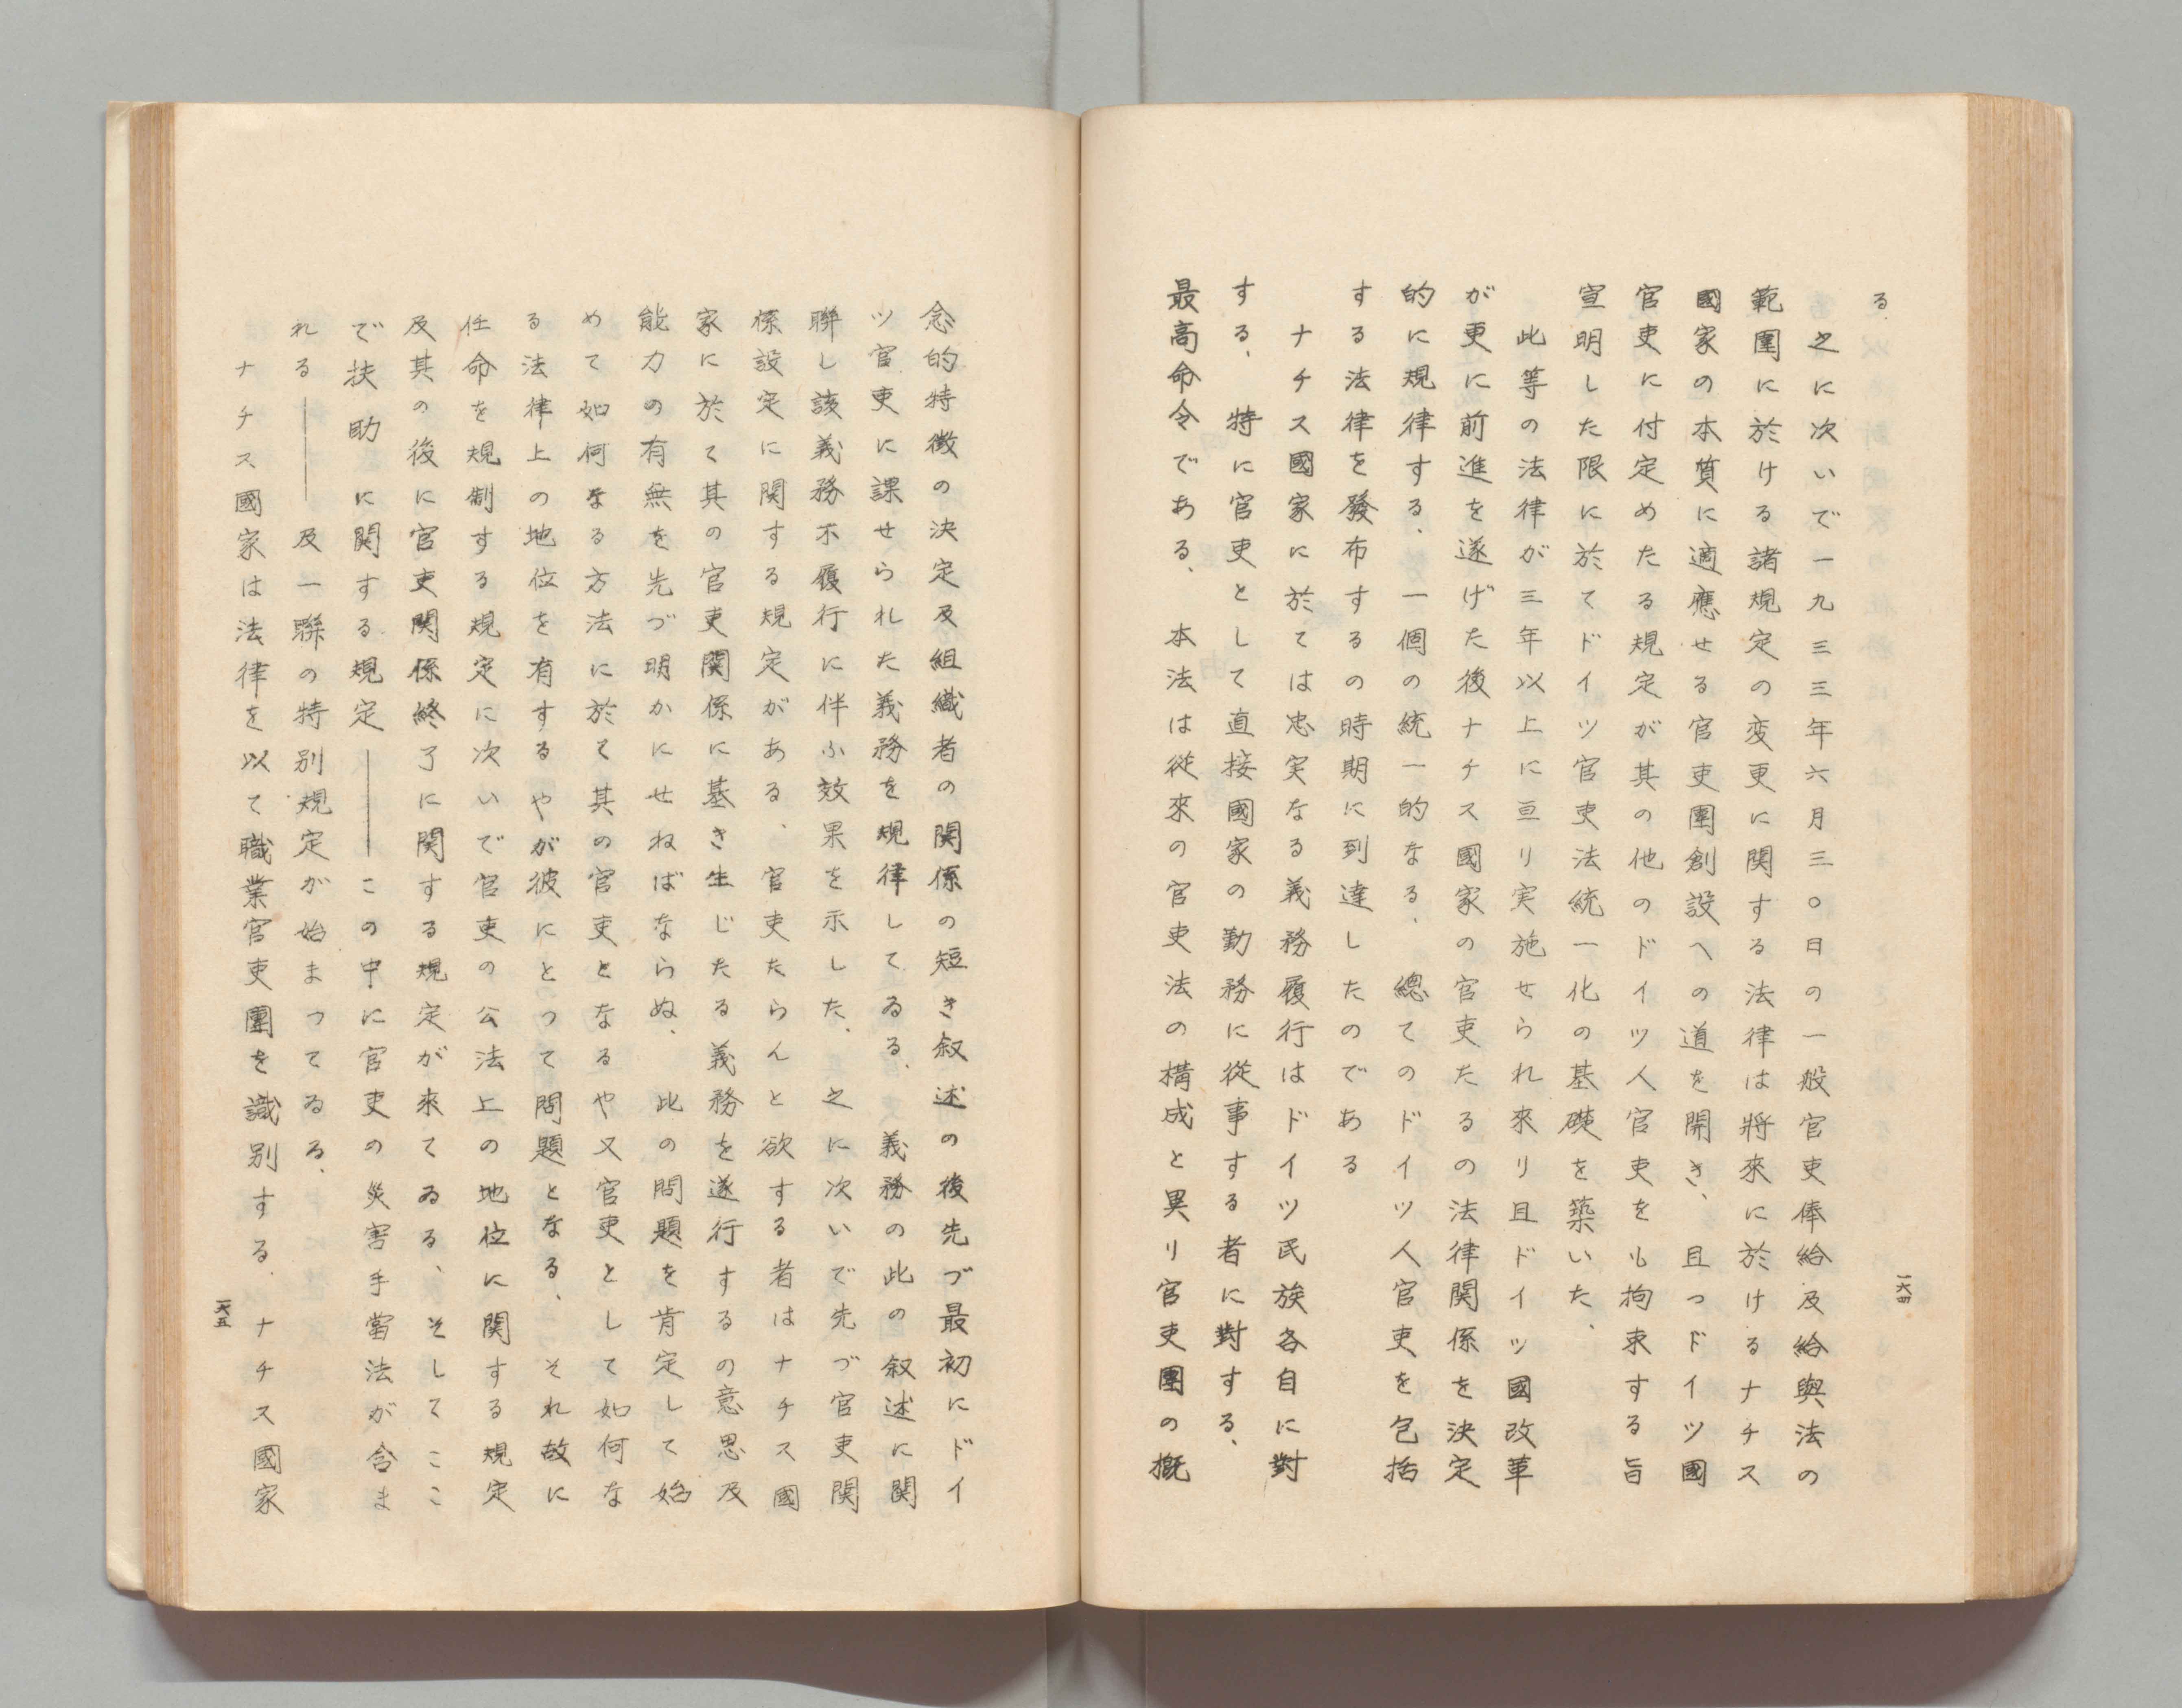 る、
之に次いで一九三三年六月三〇日の一般官吏俸給及給與法の
範圍に於ける諸規定の変更に関する法律は將來に於けるナチス
國家の本質に適應せる官吏團創設への道を開き、且つドイツ國
官吏に付定めたる規定が其の他のドイツ人官吏をも拘束する旨
宣明した限に於てドイツ官吏法統一化の基礎を築いた、
此等の法律が三年以上に亘り実施せられ來り且ドイツ國改革
が更に前進を遂げた後ナチス國家の官吏たるの法律関係を決定
的に規律する、一個の統一的なる、總てのドイツ人官吏を包括
する法律を發布するの時期に到達したのである
ナチス國家に於ては忠実なる義務履行はドイツ民族各自に對
する、特に官吏として直接國家の勤務に從事する者に對する、
最高命令である、本法は從來の官吏法の構成と異り官吏團の概
一六四
念的特徴の決定及組織者の関係の短き叙述の後先づ最初にドイ
ツ官吏に課せられた義務を規律してゐる、義務の此の叙述に関
聯し該義務不履行に伴ふ効果を示した、之に次いで先づ官吏関
係設定に関する規定がある、官吏たらんと欲する者はナチス國
家に於て其の官吏関係に基き生じたる義務を遂行するの意思及
能力の有無を先づ明かにせねばならぬ、此の問題を肯定して始
めて如何なる方法に於て其の官吏となるや又官吏として如何な
る法律上の地位を有するやが彼にとつて問題となる、それ故に
任命を規制する規定に次いで官吏の公法上の地位に関する規定
及其の後に官吏関係終了に関する規定が來てゐる、そしてここ
で扶助に関する規定――この中に官吏の災害手當法が含ま
れる――及一聯の特別規定が始まつてゐる、
ナチス國家は法律を以て職業官吏團を識別する、ナチス國家
一六五